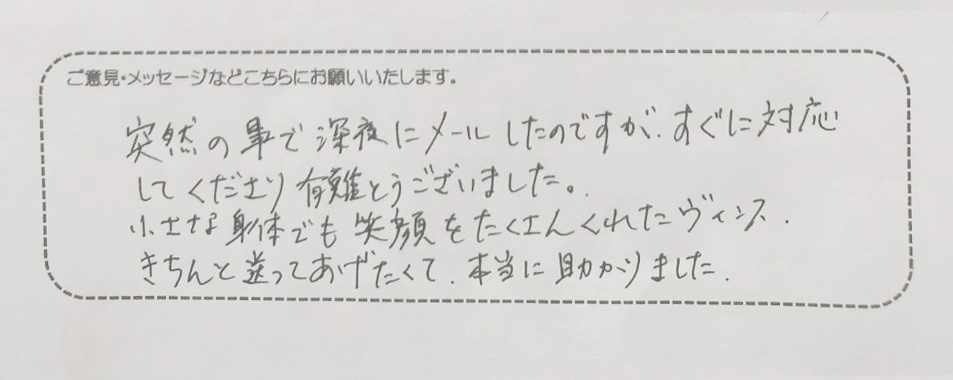 ご意見・メッセージなどこちらにお願いいたします。
突然の事で深夜にメールしたのですが、すぐに対応
してくださり有難とうございました。
小さな身体でも笑顔をたくさんくれたヴィンス、
きちんと送ってあげたくて、本当に助かりました。